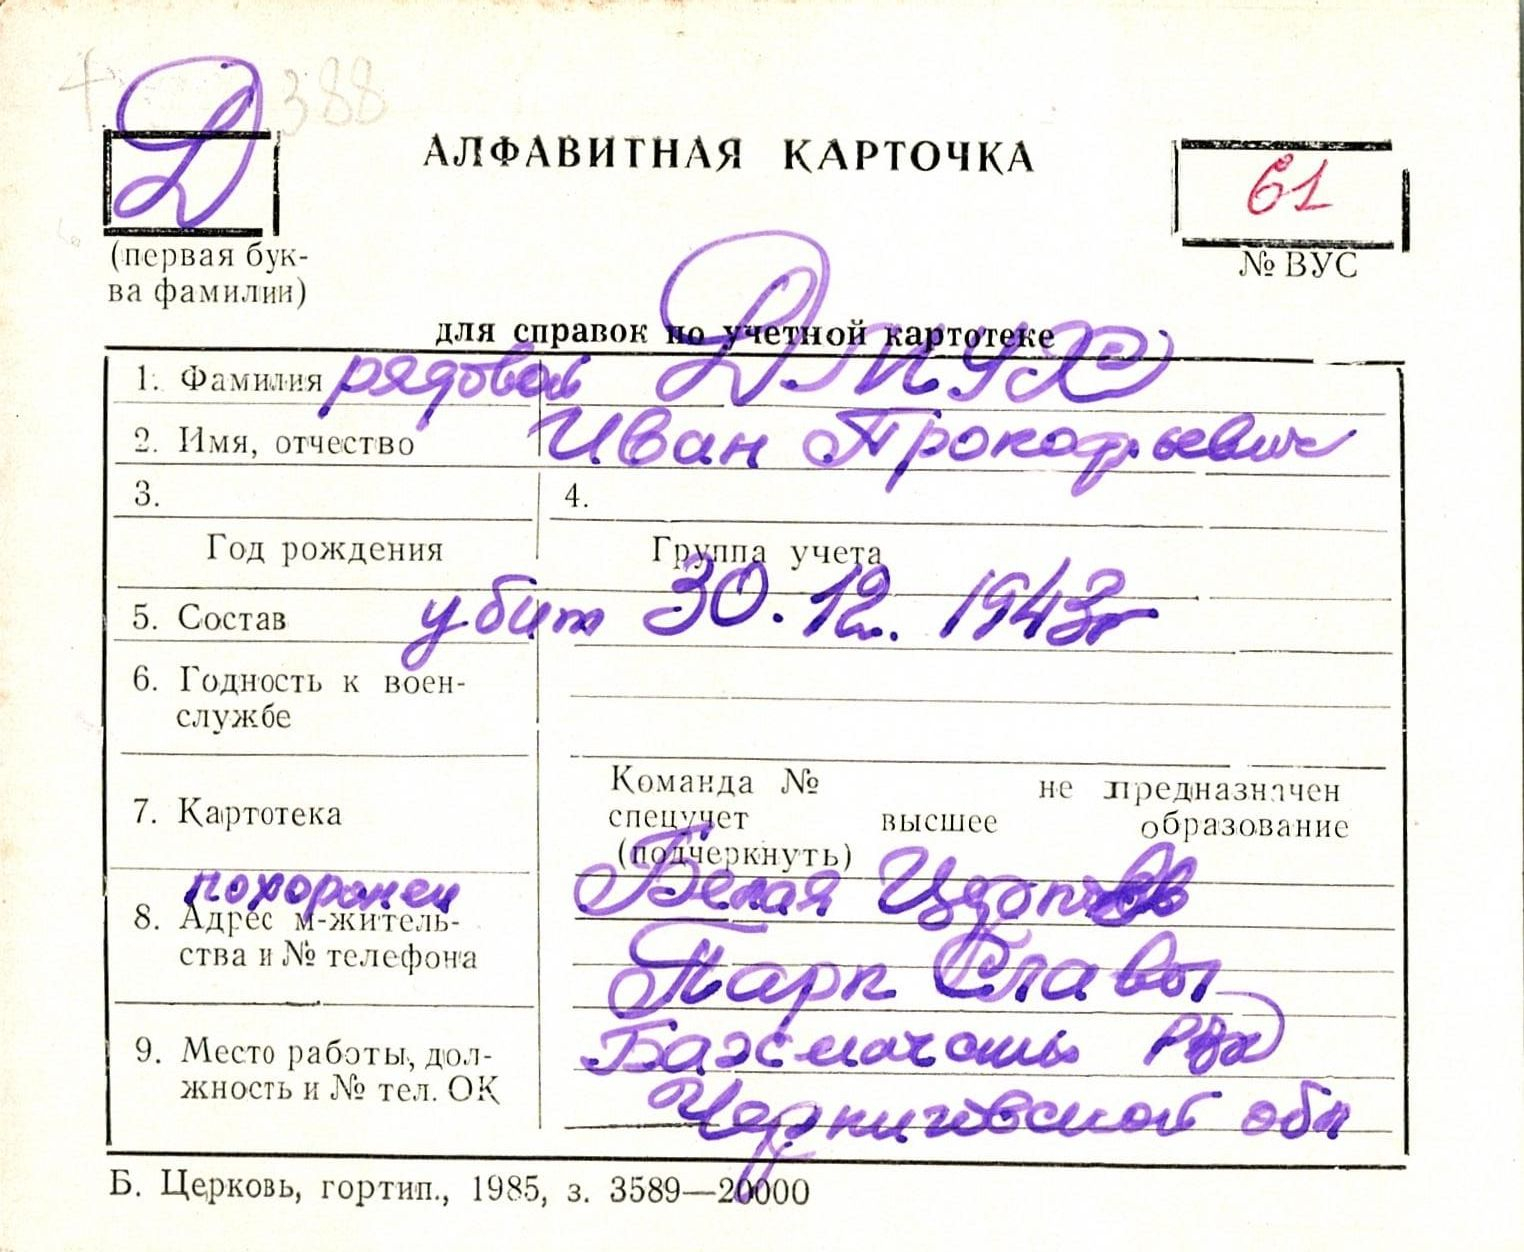 388
Д
АЛФАВИТНАЯ КАРТОЧКА
61
(первая бук-
ва фамилии)
№ ВУС
для справок по учетной картотеке
1. Фамилия рядовой ДМУХ
2. Имя, отчество Иван Прокофьевич
3. 4.
Год рождения Группа учета
5. Состав убит 30.12.1943г
6. Годность к воен-
службе
Команда № не предназначен
7. Картотека спецучет высшее образование
(подчеркнуть)
похоронен Белая Церковь
8. Адрес м-житель-
ства и № телефона Парк Славы
9. Место работы, дол- РВК
жность и № тел. ОК Черниговской обл
Б. Церковь, гортип., 1985, з. 3589—20000